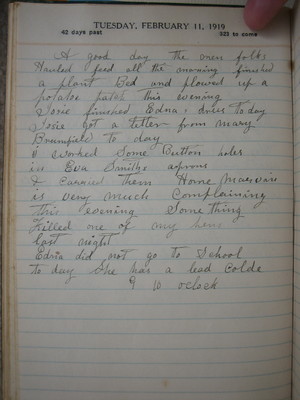 TUESDAY, FEBRUARY 11, 1919
42 days past 323 to come
A good day the men folks
Hauled feed all the morning finished
a plant Bed and plowed up a
potatoe patch this evening
Josie finished Ednas dress to day
Josie got a letter from mary
Broomfield to day
I worked Some Button holes
in Eva Smiths aprons
& carried them Home
is very much Complaining
this evening Some thing
Killed one of my hens
last night
Edna did not go to School
to day She has a bad Colde
9 10 oclock